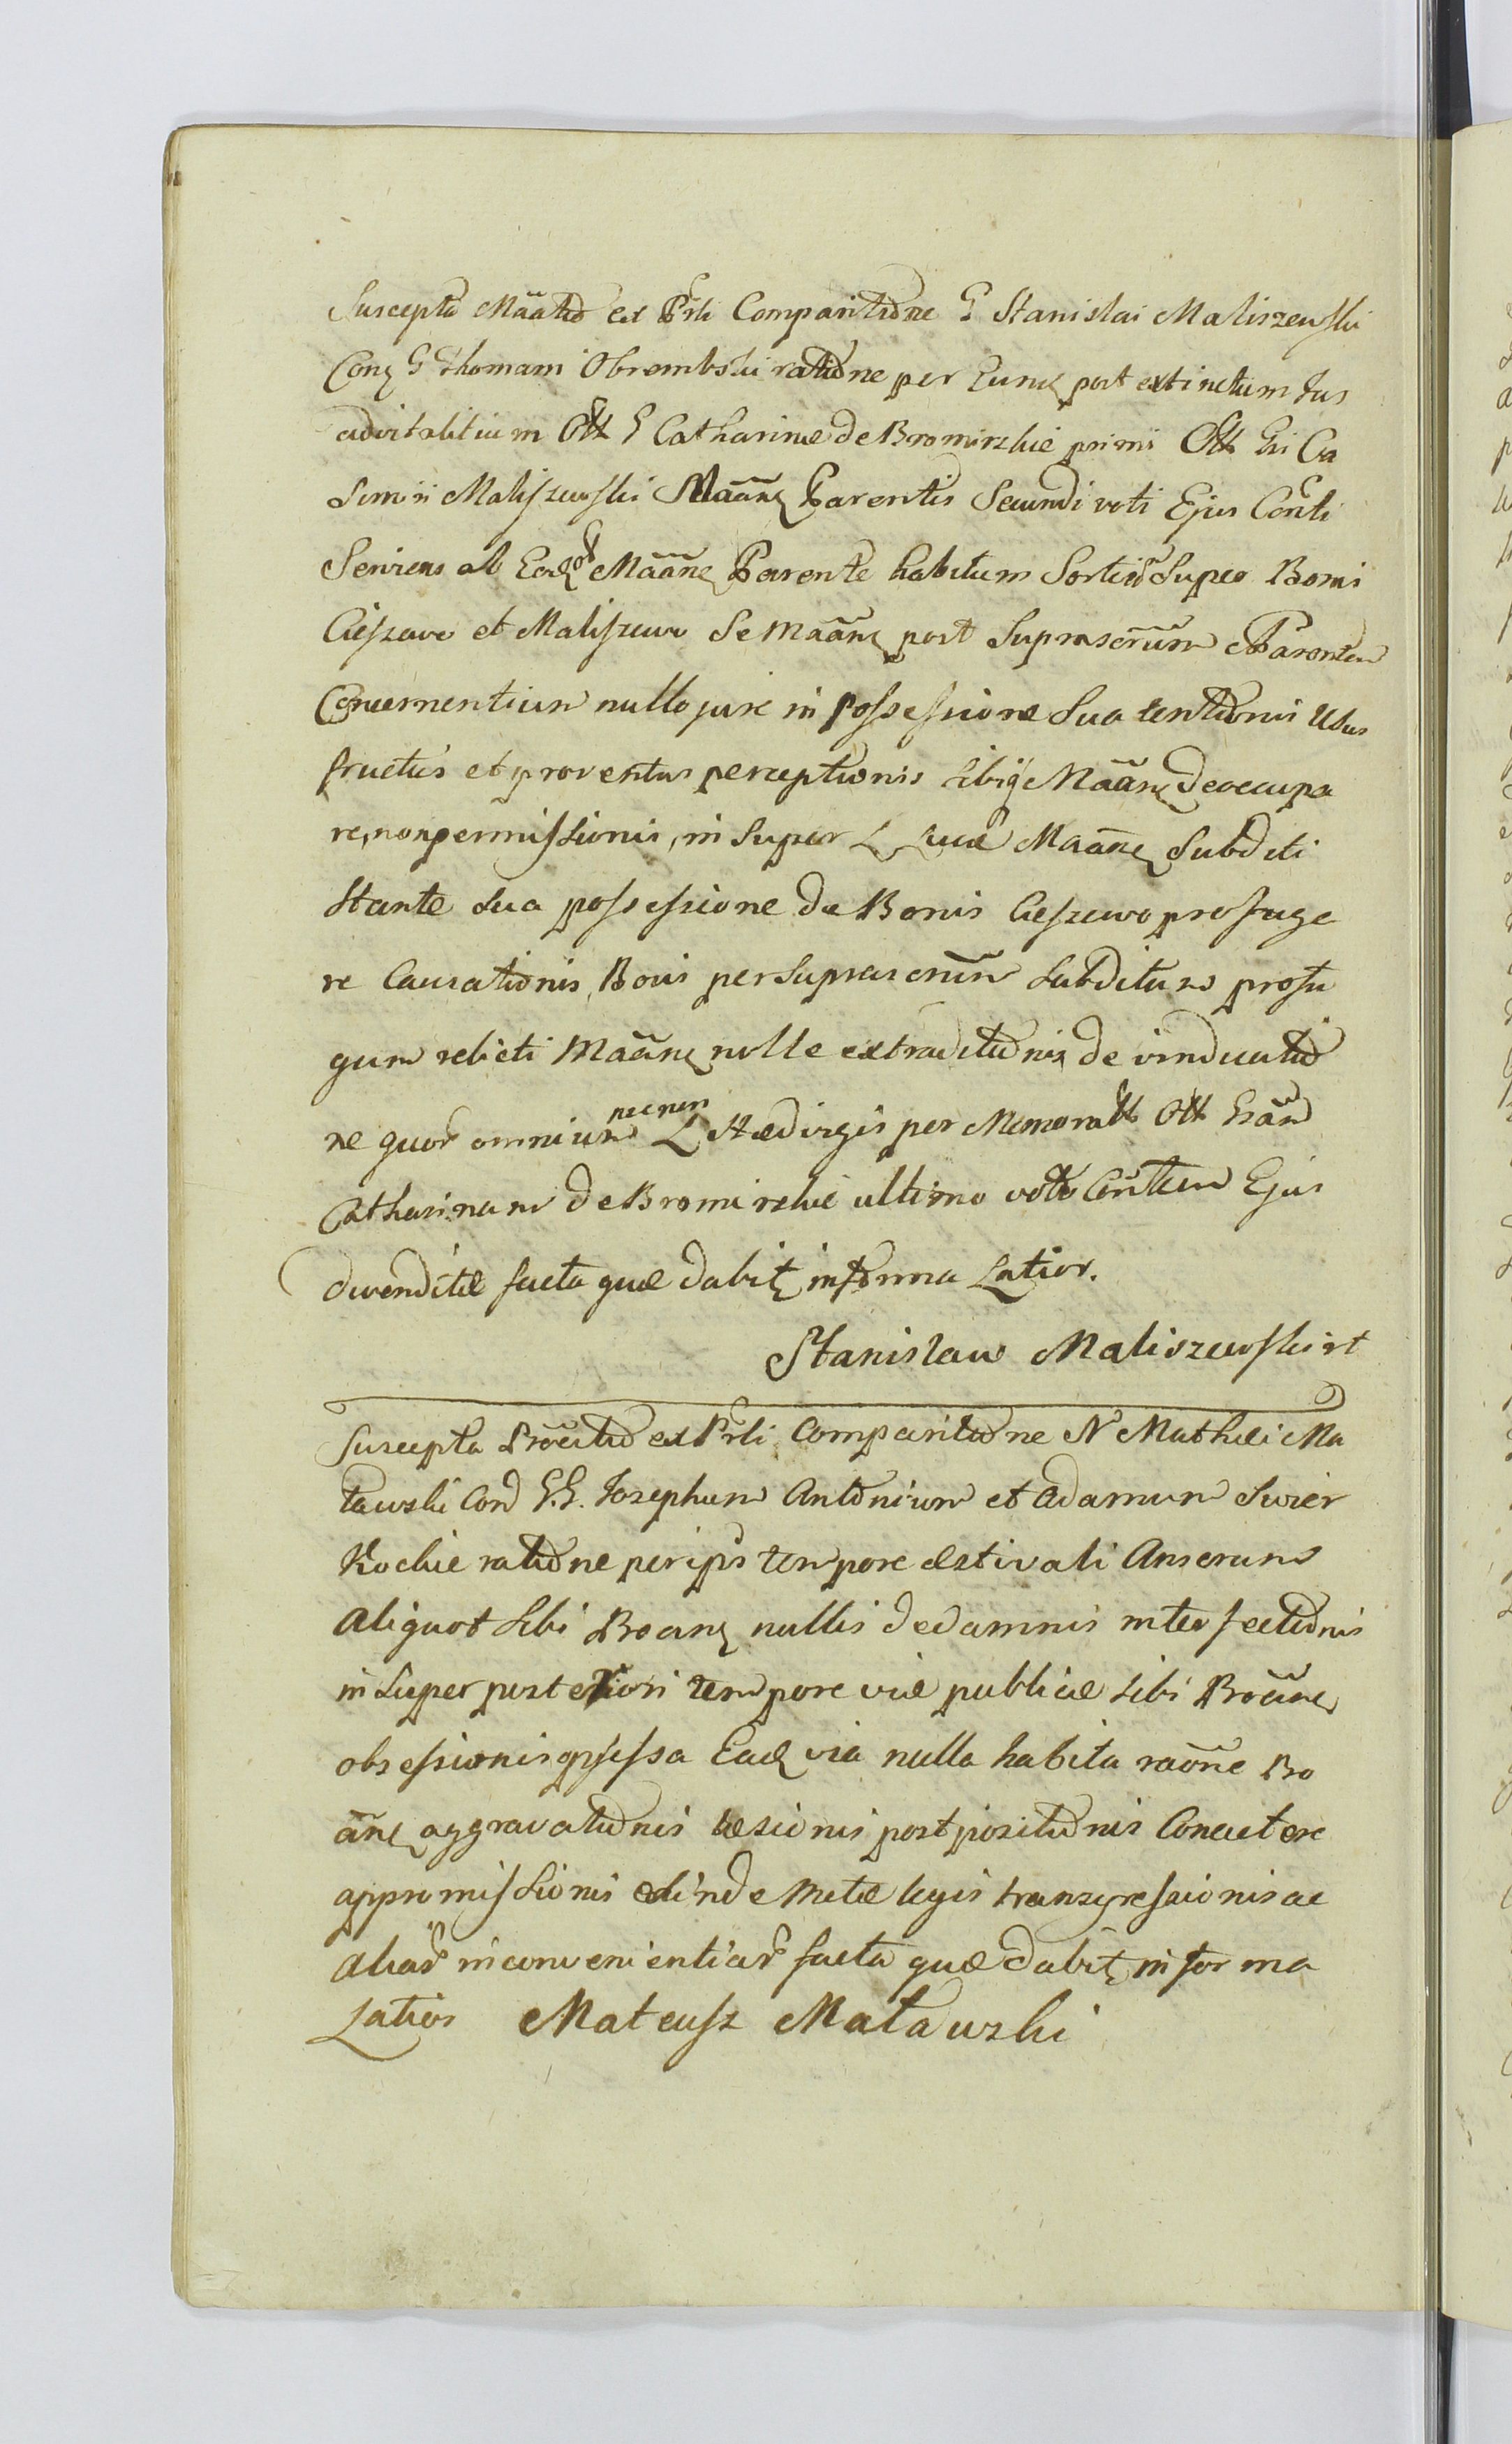 Suscepta Mãatio ex Prsli Comparitione G Stanislai Maliszewski
Conq G Thomam Obrembski ratione per Eund post extinctum Jus
advitalitium Olt G Catharinæ de Bromirskie primi Olt Gsi Ca
simiri Maliszewski Mãanq Parentis Secundi voti Ejus Conrli
Serviens ab Eod Mãanq Parente habitum Sortium Super Bonis
Cieszewo et Maliszewo Se Mãanq post Suprascrum Parentem
Concernentium nullo jure in possessione Sua tentionis Usus
fructus et proventus perceptionis Sibiq Mãanq deoccupa
re, non permissionis, in super L Suæ Mãanq Subditi
Stante Sua possessione de Bonis Cieszewo profuge
re Causationis, Bovis per Suprascrum Subditum profu
gum relicti Mãanq nolle extraditionis de vindicatio
ne quor omnium necnon L per Memorall Olt Gsãm
Catharinam de Bromirskie ultimo voto Conrltem Ejus
divenditæ facta quæ dabit in forma Latior.
Stanislaw Maliszewski
Suscepta Proãtio ex Prsli Comparitione N Mathæi Ma
tawski Con G.G. Josephum Antonium et Adamum Swier
kockie ratione per ipsos tempore æstivali Anserum
Aliquot Sibi Proanq nullis de damnis interfectionis
in Super posteriori tempore viæ publicæ Sibi Proãnq
obsessionis obsessa Eadq via nulla habita raone Pro
ãnq aggravationis læsionis postpositionis Concutere
appromissionis exinde metæ legis transgressionis ac
Aliar inconvenientiar facta quæ dabit in forma
Latior Mateusz Matawski